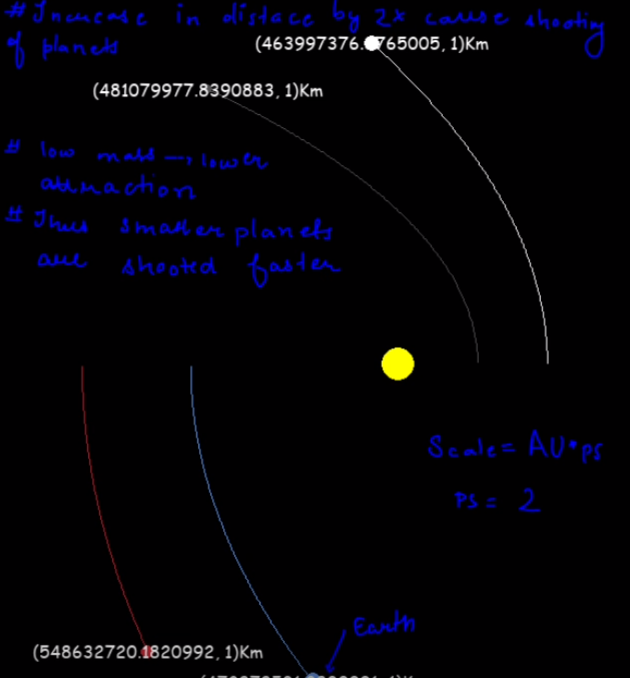 # Increase in distace by 2x cause shooting
of planets
(463997376. 765005, 1)Km
(481079977.8390883, 1)Km
# low mass → lower
attraction
# Thus smaller planets
are shooted faster
Scale = AU * ps
ps = 2
Earth
(548632720.1820992, 1)Km